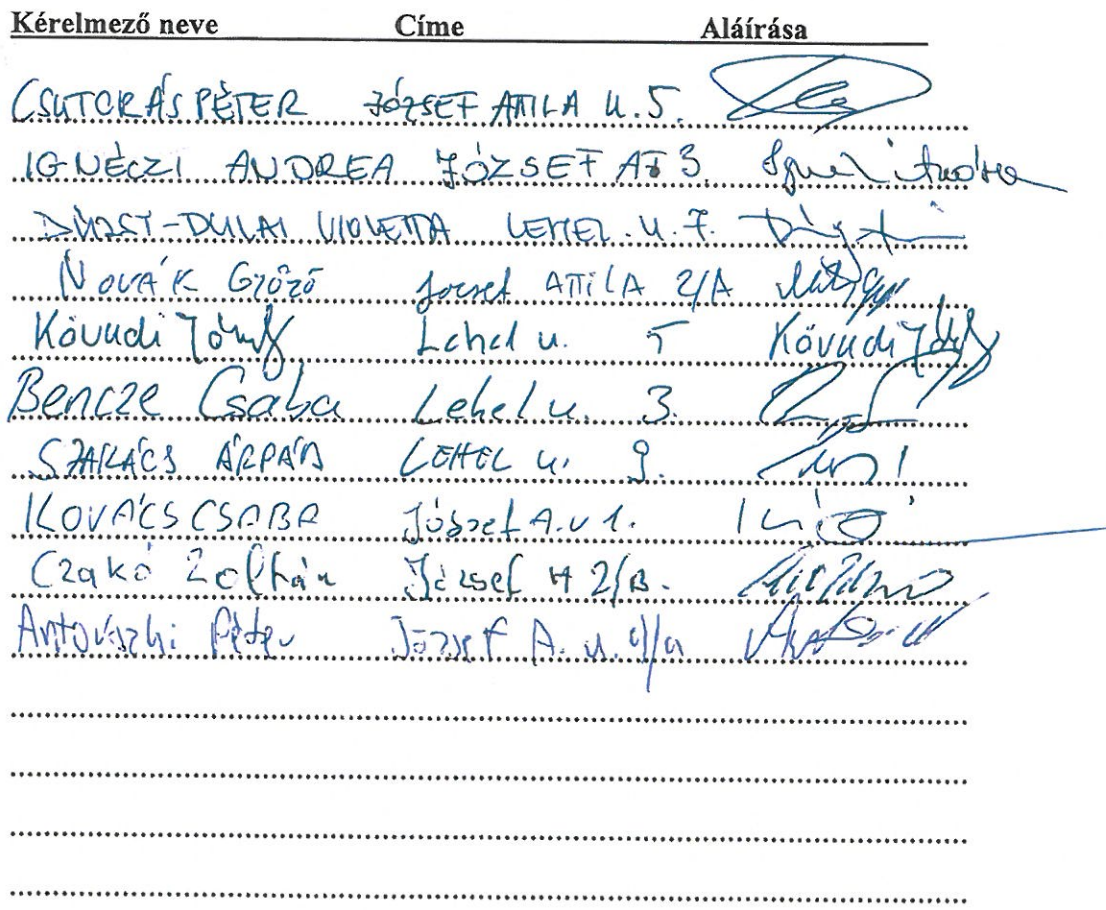 Kérelmező neve Címe Aláírása
CSUTORÁS PÉTER JÓZSEF ATTILA U. 5.
IGNÉCZI ANDREA JÓZSEF AT 3. Andrea
DÚZST-DULAI VIOLETTA LEHEL U. 7.
NOVÁK GYŐZŐ József ATTILA 2/A
Kővudi József Lehel u. 5 Kővudi József
Bencze Csaba Lehel u. 3.
SZAKÁCS ÁRPÁD LEHEL u. 9.
KOVÁCS CSABA József A. u 1.
Czakó Zoltán József A 2/B.
Péter József A. u.